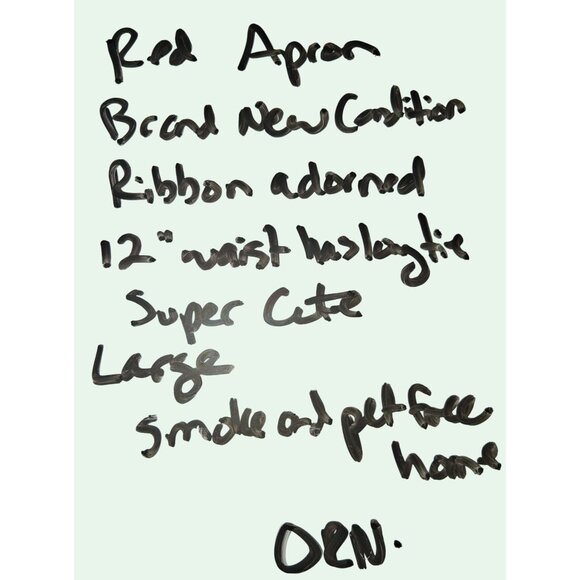 Red Apron
Brand New Condition
Ribbon adorned
12" waist has long tie
Super Cute
Large
smoke and pet free
home
ORN.